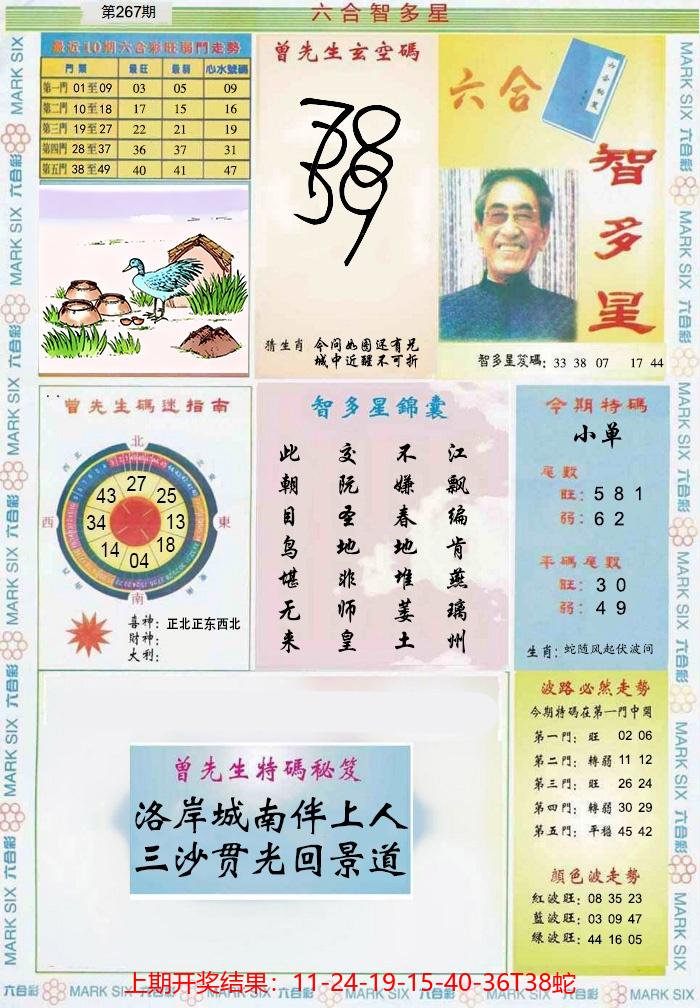 第267期
六合智多星
最近10期六合彩旺弱門走勢
門類 最旺 最弱 心水號碼
第一門 01至09 03 05 09
第二門 10至18 17 15 16
第三門 19至27 22 21 19
第四門 28至37 36 37 31
第五門 38至49 40 41 47
曾先生玄空碼
猜生肖 今问如图还有兄
城中近醒不可折
六合
六合秘笈
智多星
智多星笈碼: 33 38 07 17 44
曾先生碼迷指南
北
西北
東北
西
東
南
27
43 25
34 13
14 18
04
喜神: 正北正东西北
财神:
大利:
智多星錦囊
江飘编肯燕璃州
不嫌春地堆萎土
交阮圣地非师皇
此朝目鸟堪无来
今期特碼
小单
尾数
旺: 5 8 1
弱: 6 2
平碼尾数
旺: 3 0
弱: 4 9
生肖: 蛇随风起伏波间
曾先生特碼秘笈
洛岸城南伴上人
三沙贯光回景道
波路必然走勢
今期特碼在第一門中開
第一門: 旺 02 06
第二門: 轉弱 11 12
第三門: 旺 26 24
第四門: 轉弱 30 29
第五門: 平穩 45 42
顏色波走勢
紅波旺: 08 35 23
藍波旺: 03 09 47
绿波旺: 44 16 05
上期开奖结果：11-24-19-15-40-36T38蛇
MARK SIX 六合彩